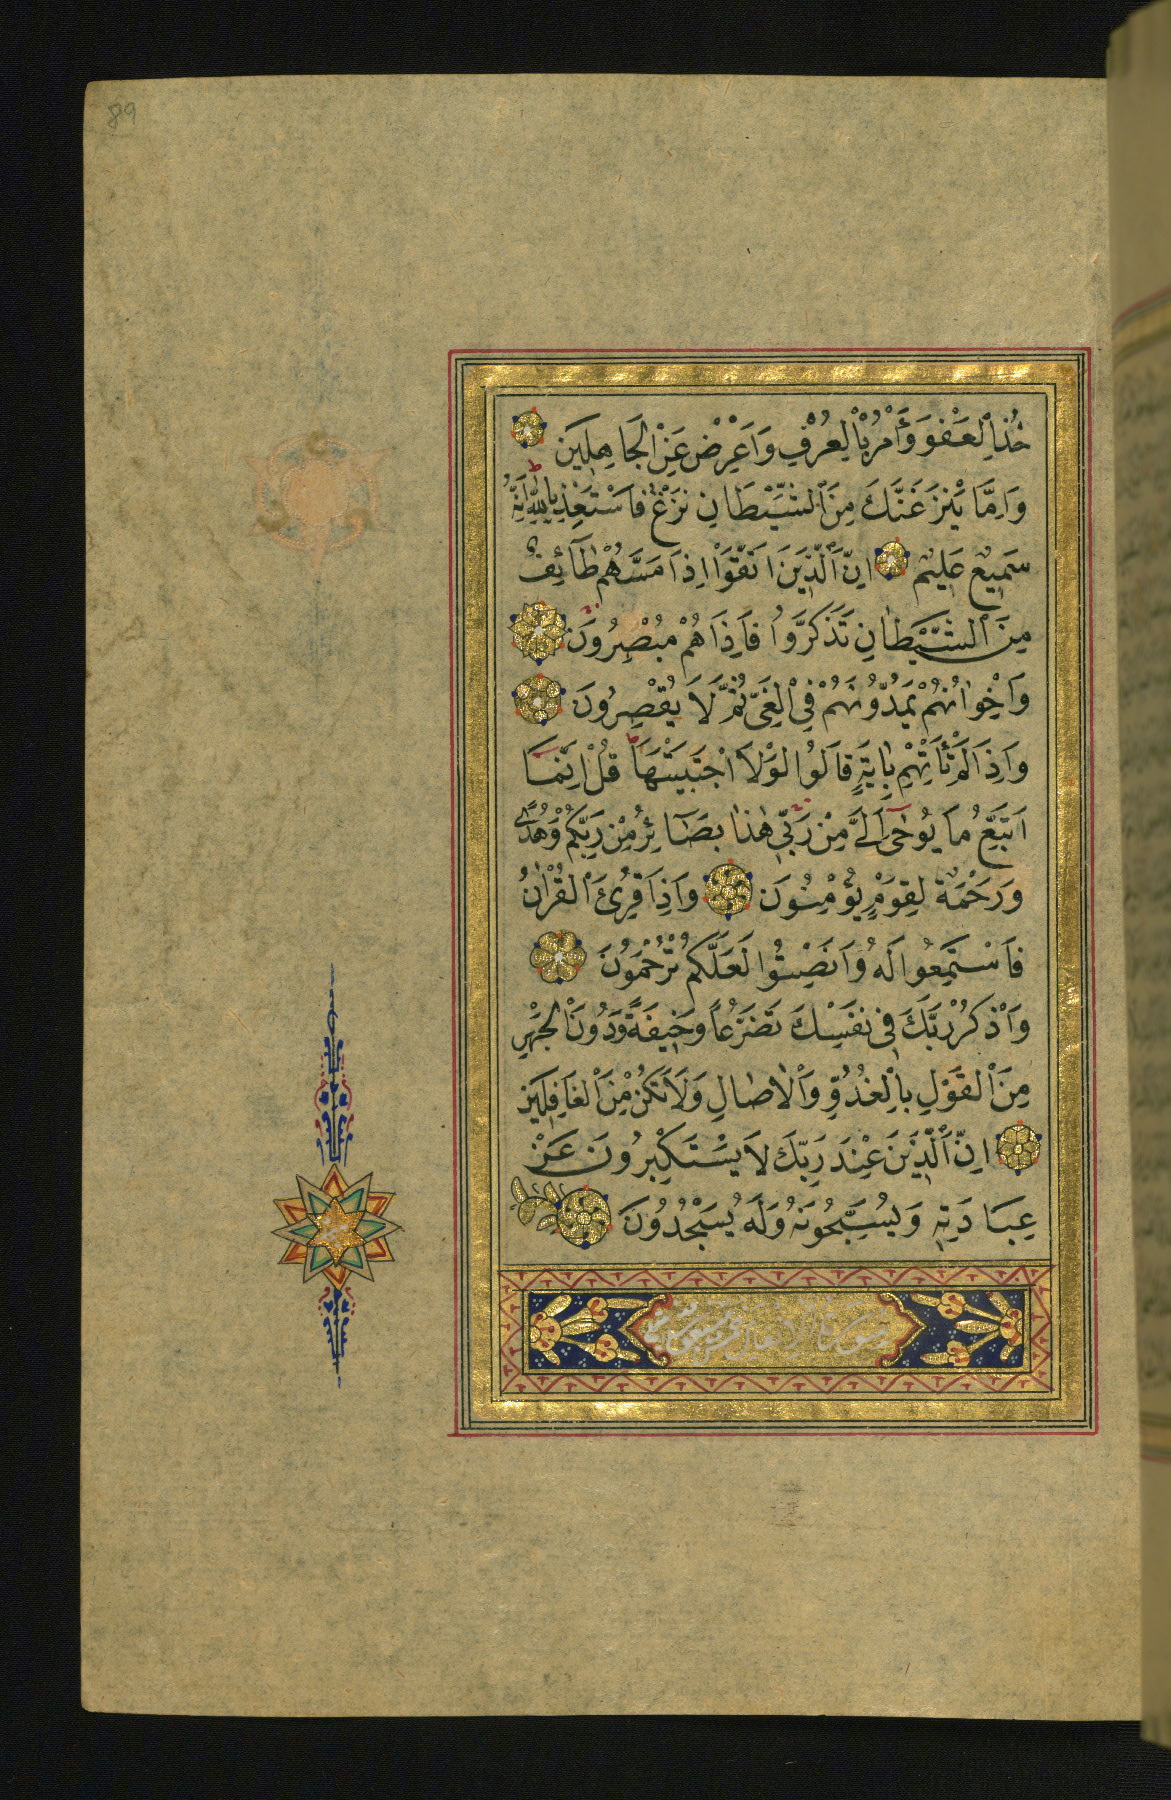 89
خُذِ الْعَفْوَ وَأْمُرْ بِالْعُرْفِ وَاَعْرِضْ عَنِ الْجَاهِلِينَ
وَاِمَّا يَنْزَغَنَّكَ مِنَ الشَّيْطَانِ نَزْغٌ فَاسْتَعِذْ بِاللّٰهِ اِنَّهُ
سَمِيعٌ عَلِيمٌ اِنَّ الَّذِينَ اتَّقَوْا اِذَا مَسَّهُمْ طَآئِفٌ
مِنَ الشَّيْطَانِ تَذَكَّرُوا فَاِذَا هُمْ مُبْصِرُونَ
وَاِخْوَانُهُمْ يَمُدُّونَهُمْ فِي الْغَيِّ ثُمَّ لَا يُقْصِرُونَ
وَاِذَا لَمْ تَأْتِهِمْ بِاٰيَةٍ قَالُوا لَوْلَا اجْتَبَيْتَهَا قُلْ اِنَّمَا
اَتَّبِعُ مَا يُوحٰى اِلَيَّ مِنْ رَبِّي هٰذَا بَصَآئِرُ مِنْ رَبِّكُمْ وَهُدًى
وَرَحْمَةٌ لِقَوْمٍ يُؤْمِنُونَ وَاِذَا قُرِئَ الْقُرْاٰنُ
فَاسْتَمِعُوا لَهُ وَاَنْصِتُوا لَعَلَّكُمْ تُرْحَمُونَ
وَاذْكُرْ رَبَّكَ فِي نَفْسِكَ تَضَرُّعًا وَخِيفَةً وَدُونَ الْجَهْرِ
مِنَ الْقَوْلِ بِالْغُدُوِّ وَالْاٰصَالِ وَلَا تَكُنْ مِنَ الْغَافِلِينَ
اِنَّ الَّذِينَ عِنْدَ رَبِّكَ لَا يَسْتَكْبِرُونَ عَنْ
عِبَادَتِهِ وَيُسَبِّحُونَهُ وَلَهُ يَسْجُدُونَ
سورة الانفال